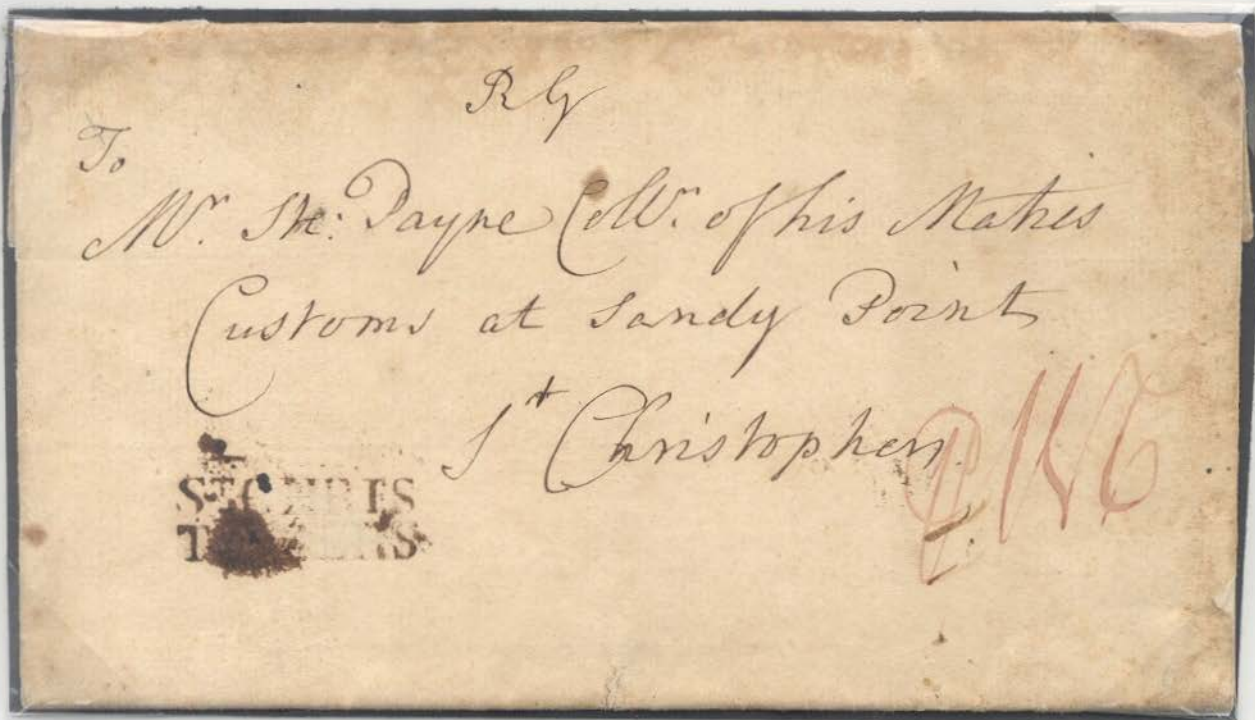 RG
To
Mr. Ste: Payne Collr. of his Maties
Customs at Sandy Point
St Christophers.
ST CHRIS